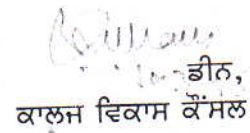 ਡੀਨ,
ਕਾਲਜ ਵਿਕਾਸ ਕੌਂਸਲ